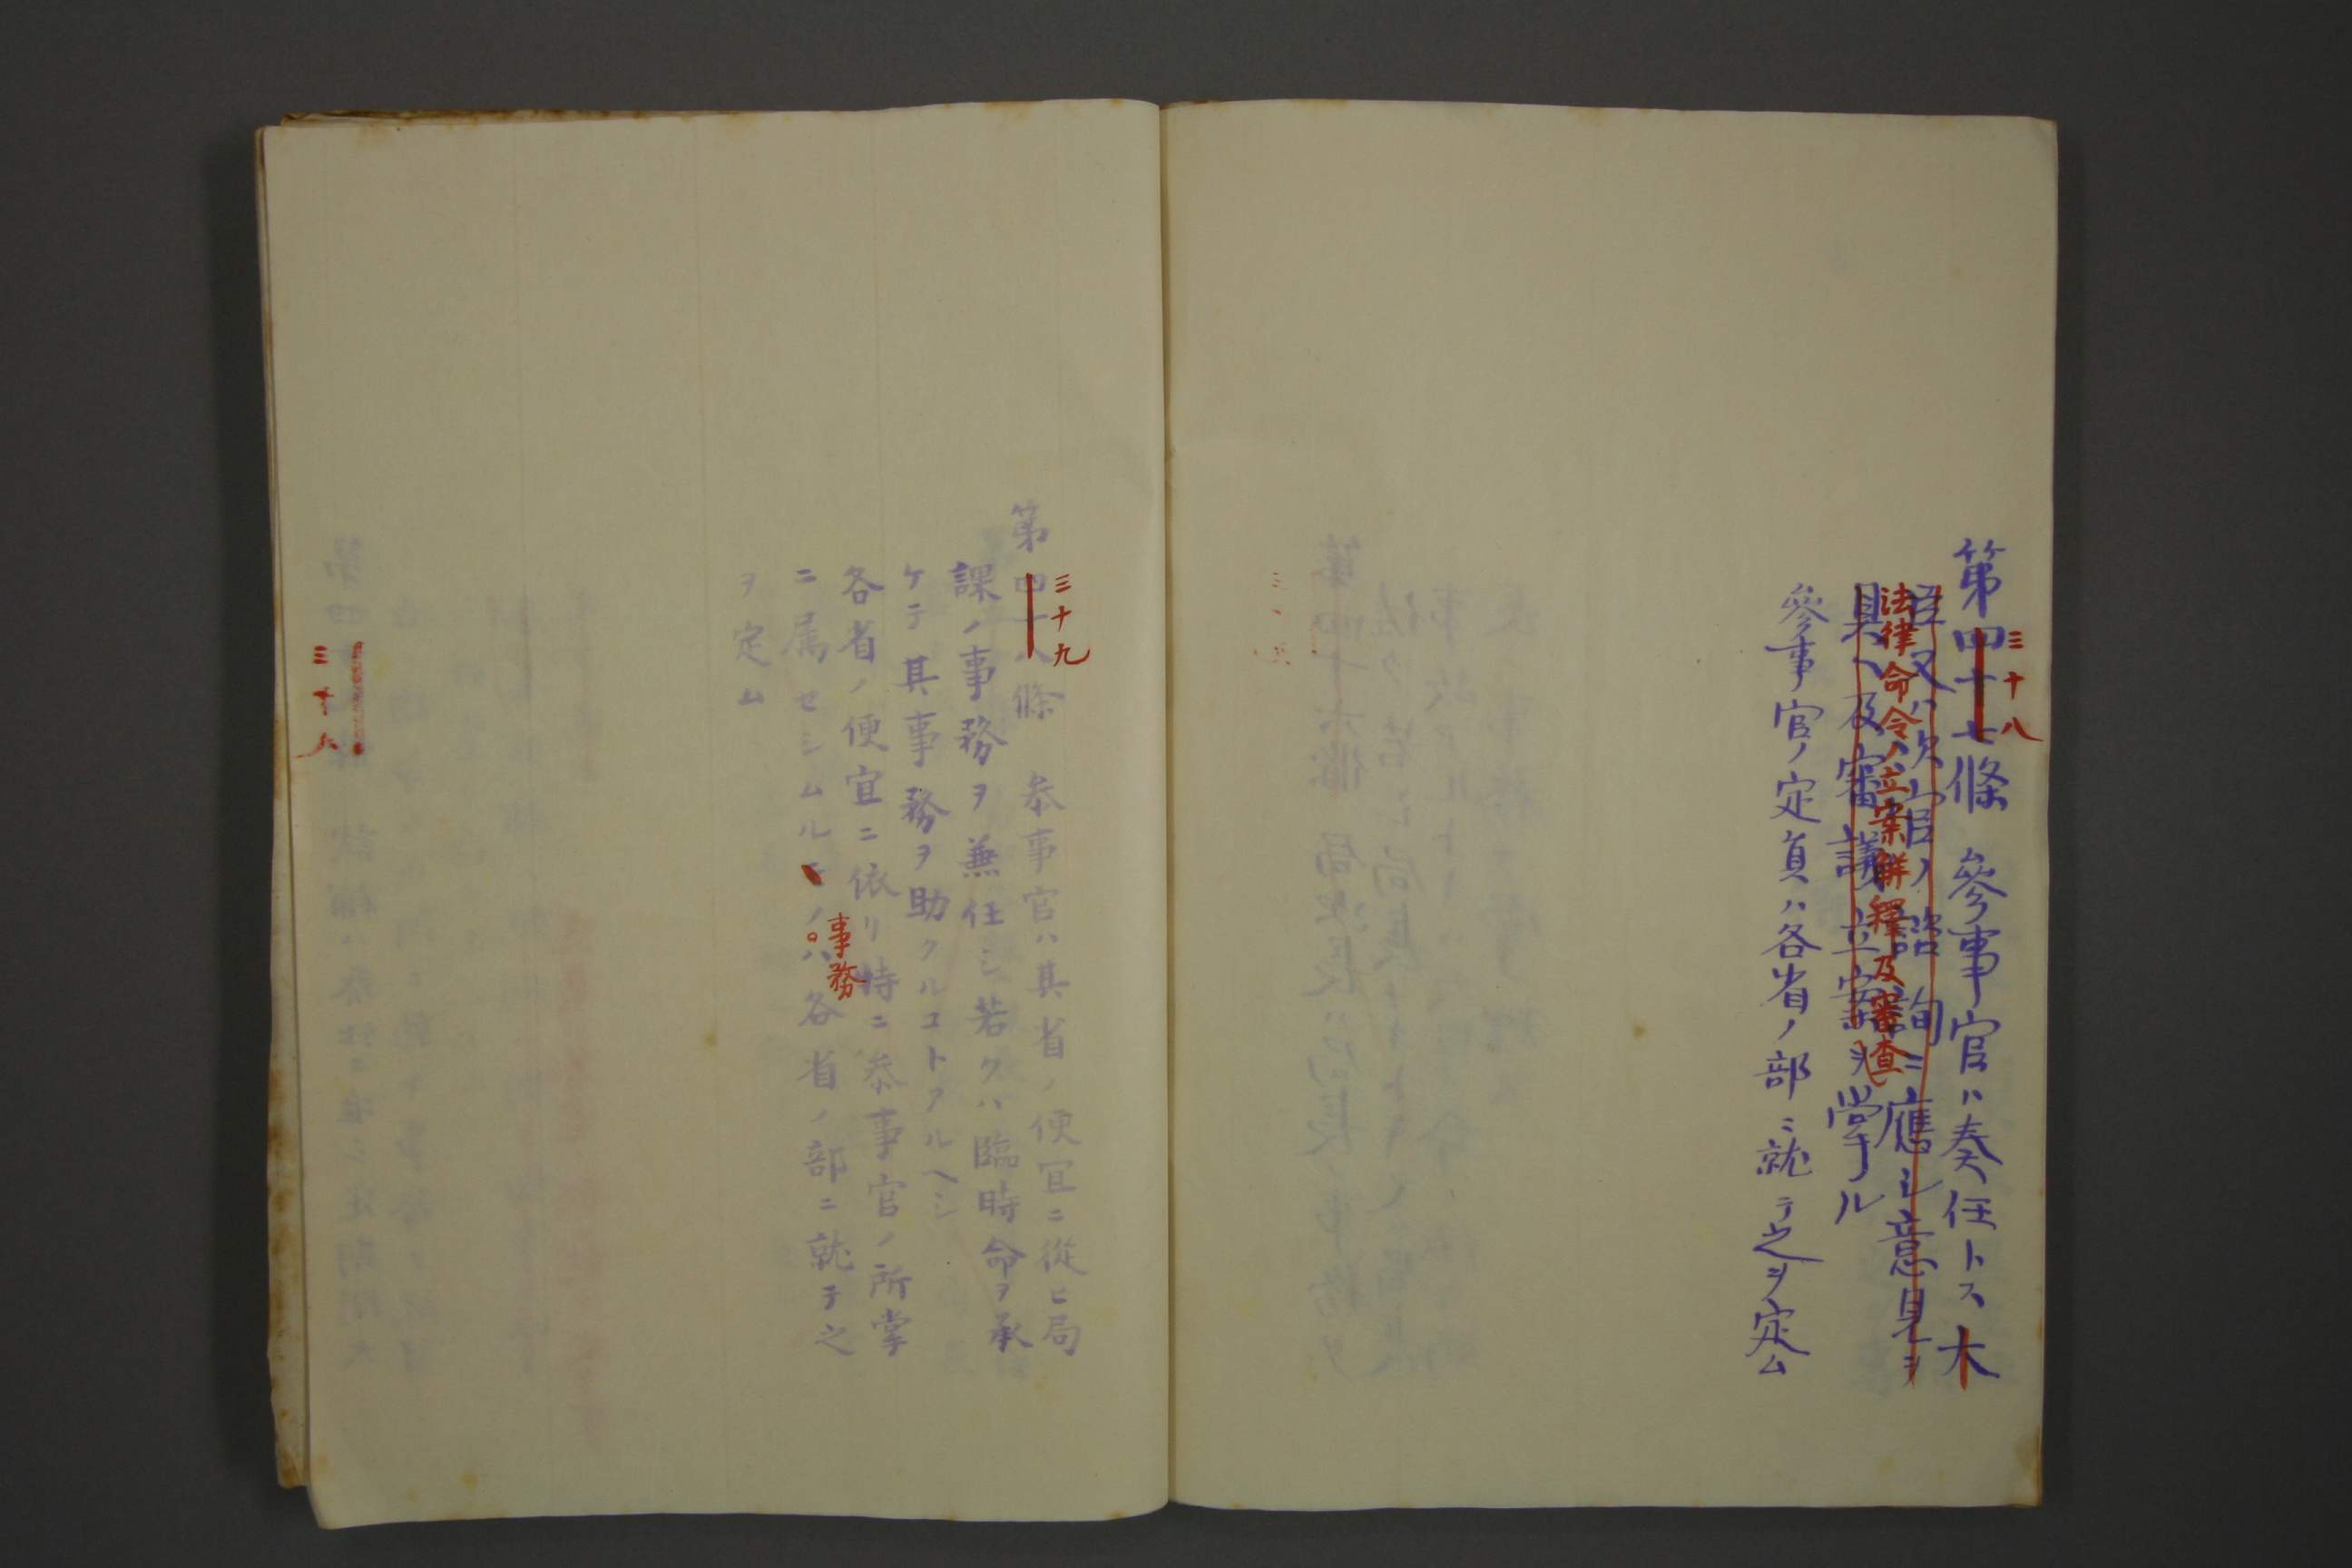 第四十七條 參事官ハ奏任トス大
三十八
臣又ハ次官ノ諮詢ニ應シ意見ヲ
法律命令ノ立案解釋及審査
具ヘ及審議立案ヲ掌ル
參事官ノ定員ハ各省ノ部ニ就テ之ヲ定ム
第四十八條 叅事官ハ其省ノ便宜ニ從ヒ局
三十九
課ノ事務ヲ兼任シ若クハ臨時命ヲ承
ケテ其事務ヲ助クルコトアルヘシ
各省ノ便宜ニ依リ特ニ叅事官ノ所掌
ニ属セシムルモノハ各省ノ部ニ就テ之
事務
ヲ定ム